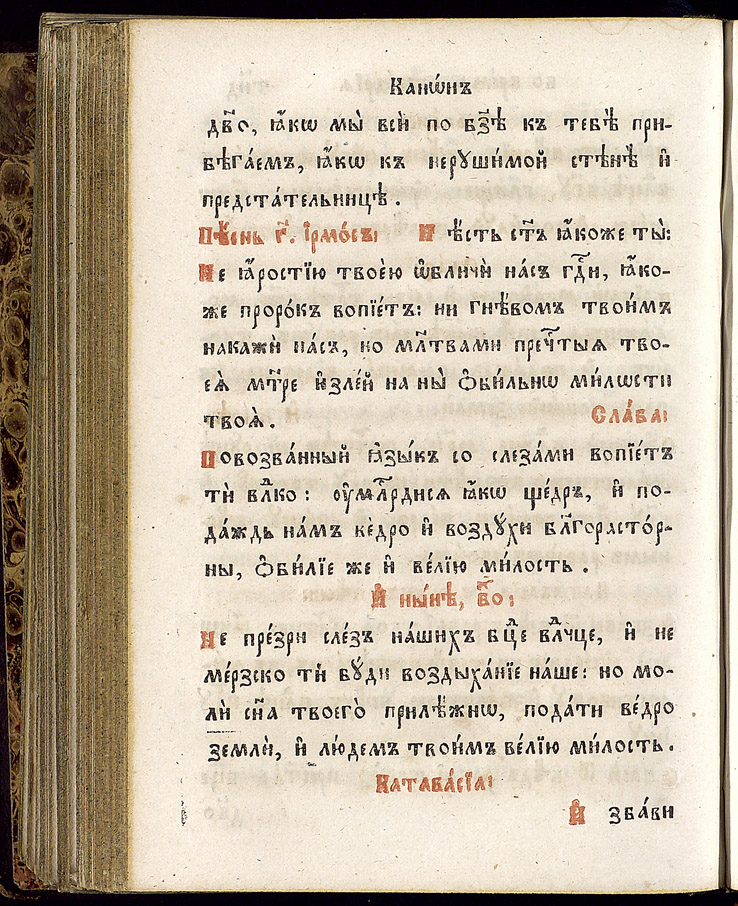 Канѡ́нъ
дв҃о, ꙗ҆́кѡ мы̀ всѝ по бз҃ѣ къ тебѣ̀ при-
бѣга́емъ, ꙗ҆́кѡ къ неруши́мой стѣнѣ̀ и҆
предста́тельницѣ.
Пѣ́снь г҃. І҆рмо́съ: Нѣ́сть ст҃ъ ꙗ҆́коже ты̀:
Не ꙗ҆́ростїю твое́ю ѡ҆бличѝ на́съ гдⷭ҇и, ꙗ҆́ко-
же проро́къ вопїе́тъ: ни гнѣ́вомъ твои́мъ
накажѝ на́съ, но мл҃твами пречⷭ҇тыѧ тво-
еѧ̀ мт҃ре и҆злѐй на ны̀ ѻ҆би́льнѡ ми́лѡсти
твоѧ̀. Сла́ва:
Повозва́нный ꙗ҆зы́къ со слеза́ми вопїе́тъ
тѝ влⷣко: ᲂу҆млⷭ҇рдисѧ ꙗ҆́кѡ ще́дръ, и҆ по-
да́ждь на́мъ ве́дро и҆ возду́хи бл҃горасто́р-
ны, ѻ҆би́лїе же и҆ ве́лїю ми́лость.
И҆ ны́нѣ, бг҃о:
Не пре́зри сле́зъ на́шихъ бцⷣе влⷣчце, и҆ не
ме́рзско тѝ бу́ди воздыха́нїе на́ше: но мо-
лѝ сн҃а твоего̀ прилѣ́жнѡ, пода́ти ве́дро
землѝ, и҆ лю́демъ твои́мъ ве́лїю ми́лость.
Катава́сїа:
И҆зба́ви